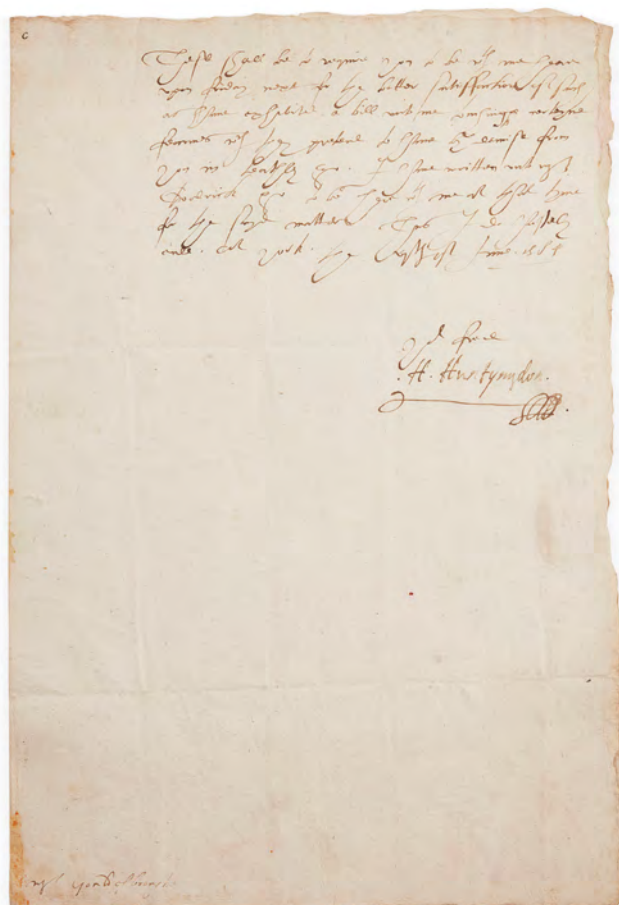 c
These shall be to require you to be wth me heare
upon friday next for the better satisfaction of such
as have exhibited a bill unto me
fermes wch they pretend to have by demise from
you in I have written unto
to be here wth me at that tyme
for the sayd matter. Thus I do hastely
ende. At York. the of June. 1584
yor frend
H. Huntyngdon.